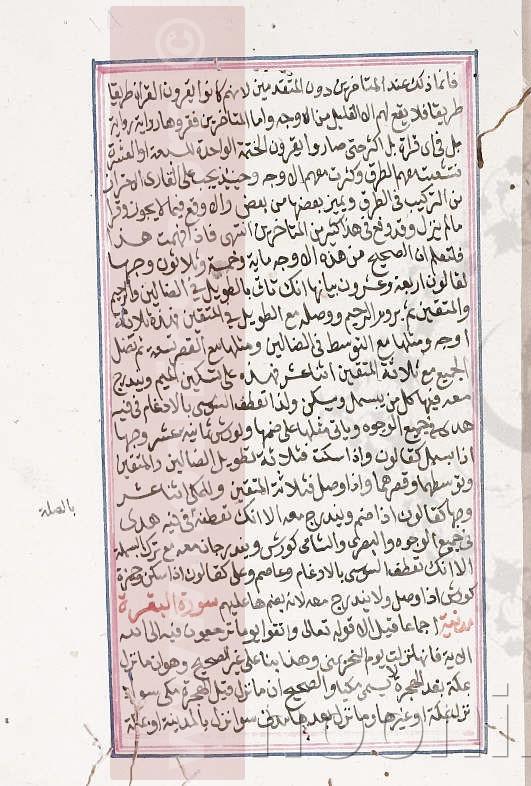 فانما ذلك عند المتاخرين دون المتقدمين لانهم كانوا يقرون القران طريقا
طريقا فلا يقع لهم الا القليل من الاوجه واما المتاخرين فقروها رواية رواية
بل قراة قراة بل اكثر حتى صاروا يقرون الختمة الواحدة للسبعة او العشرة
فتشعبت معهم الطرق وكثرت معهم الاوجه وحينئذ يجب على القارى الاحتراز
من التركيب فى الطرق ويميز بعضها من بعض والا وقع فيما لا يجوز وقراة
مالم ينزل وقد وقع فى هذا كثير من المتاخرين انتهى فاذا فهمت هذا
فلتعلم ان الصحيح من هذه الاوجه ماية وخمسة وثلاثون وجها
لقالون اربعة وعشرون بيانها انك تاتى بالطويل فى الضالين والرحيم
والمتقين ثم بروم الرحيم ووصله مع الطويل فى المتقين فهذه ثلاثة
اوجه ومثلها مع التوسط فى الضالين ومثلها مع القصر تسعة ثم تصل
الجميع مع ثلاثة المتقين اثنا عشر فهذه على تسكين الميم ويندرج
معه فيها كل من يبسمل ويسكن ولذا تعطف السوسى بالادغام فى فيه
هدى فى جميع الوجوه وياتى مثلها على ضمها ولورش ثمانية عشر وجها
اذا بسمل كقالون واذا سكت فثلاثة تطويل الضالين والمتقين
وتوسطهما وقصرهما واذا وصل فثلاثة المتقين وللمكى اثنا عشر
وجها كقالون اذا ضم ويندرج معه الا انك تعطفه فى فيه هدى
فى جميع الوجوه والبصرى والشامى كورش ويندرجان معه مع ترك البسملة
الا انك تعطف السوسى بالادغام وعاصم وعلى كقالون اذا سكن وحمزة
كورش اذا وصل ولا يندرج معه لانه يضم ها عليهم سورة البقرة
مدنية اجماعا قيل الا قوله تعالى واتقوا يوما ترجعون فيه الى الله
الاية فانها نزلت يوم النحر بمنى وهذا بنا على غير الصحيح وهو ان ما نزل
بمكة بعد الهجرة يسمى مكيا والصحيح ان ما نزل قبل الهجرة مكى سوا
نزل بمكة او غيرها وما نزل بعدها مدنى سوا نزل بالمدينة او بمكة
بالصلة